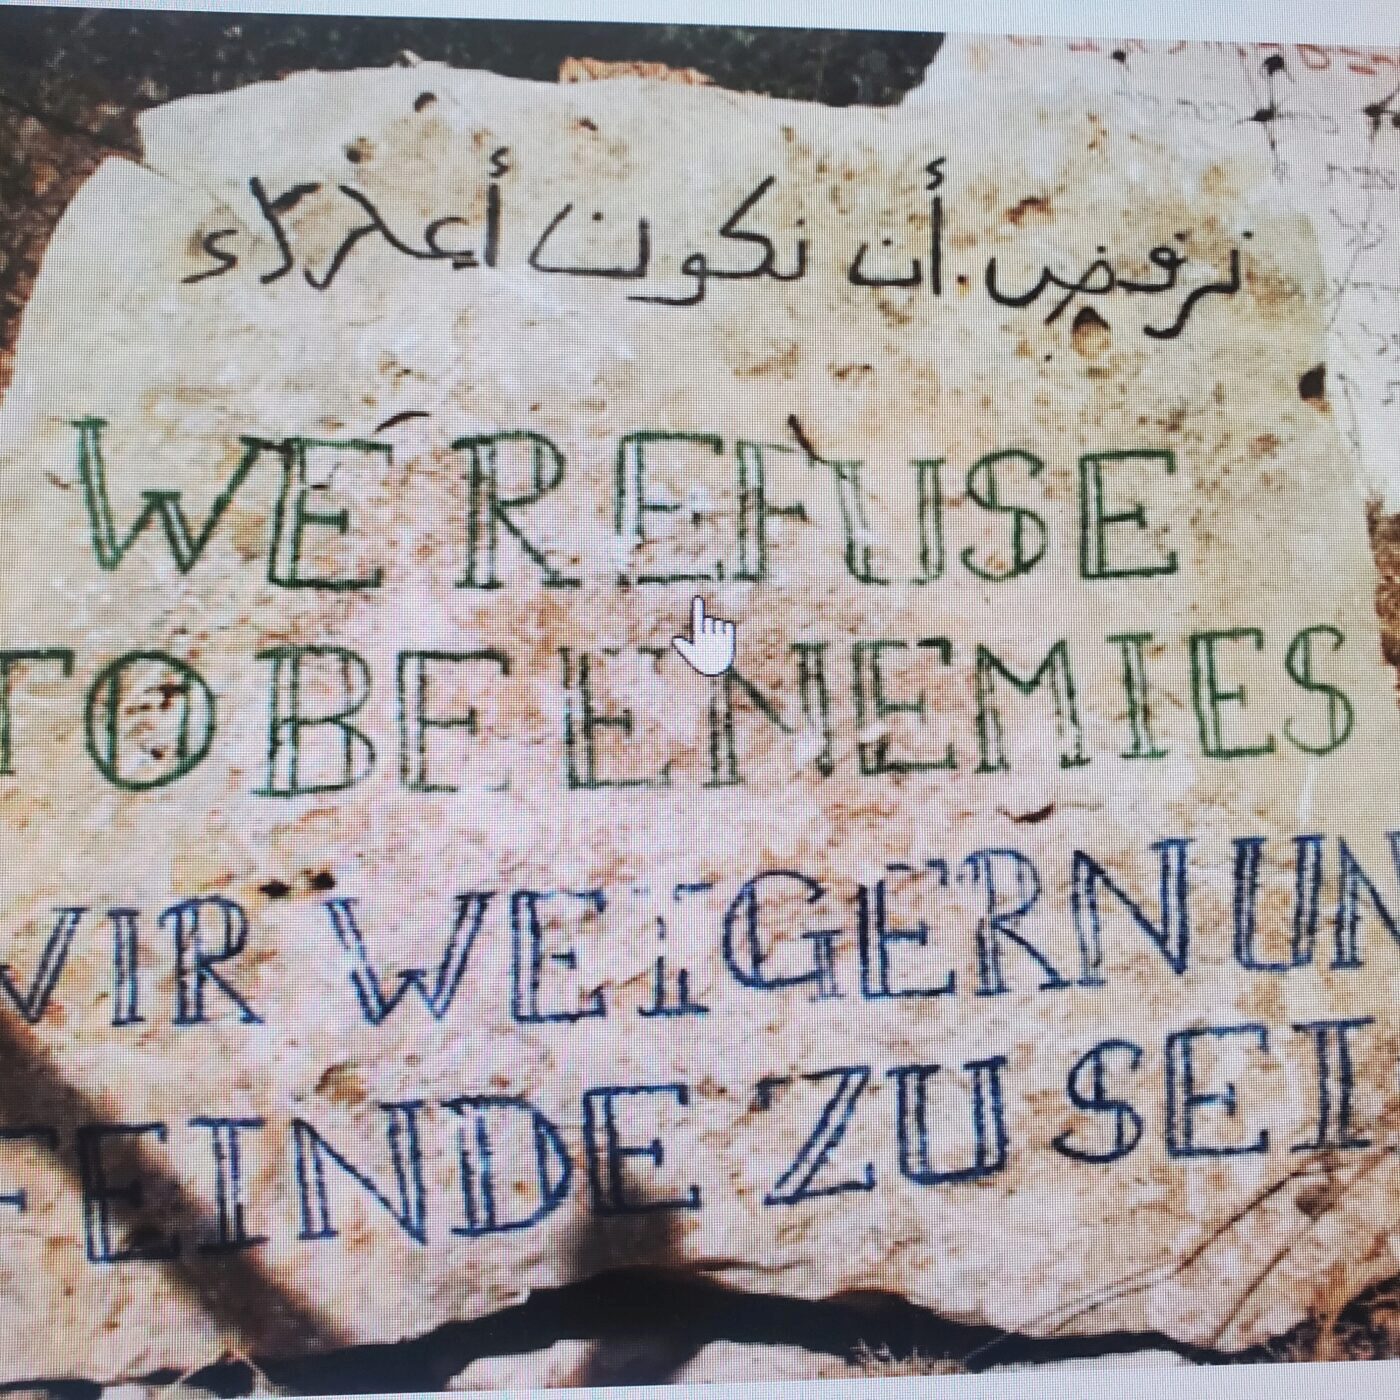 نرفض أن نكون أعداء
WE REFUSE
TO BE ENEMIES
WIR WEIGERN UN
FEINDE ZU SEI